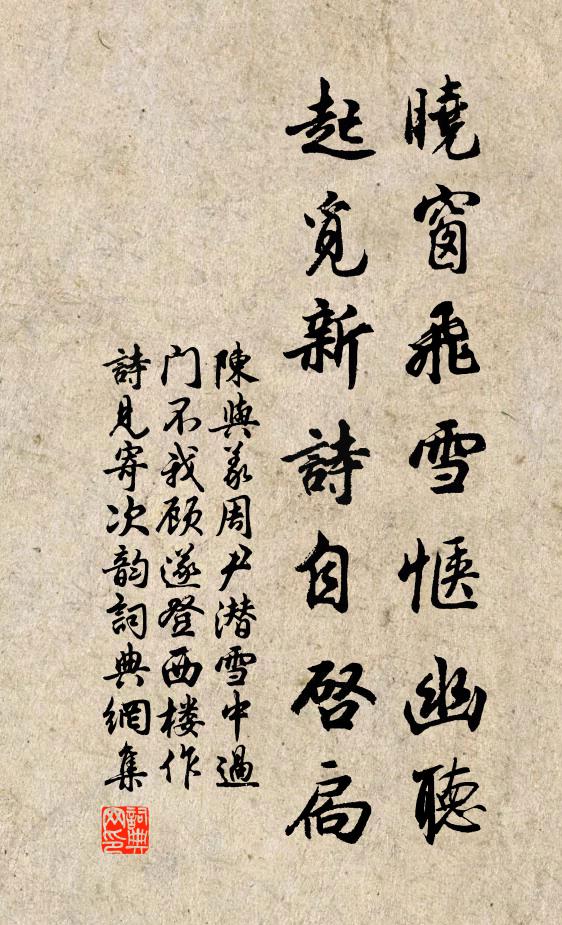 曉窗飛雪惬幽聽
起覓新詩自啓扃
陳與義周尹潜雪中過
门不我顾遂登西楼作
詩見寄次韵詞典網集
詞典网印